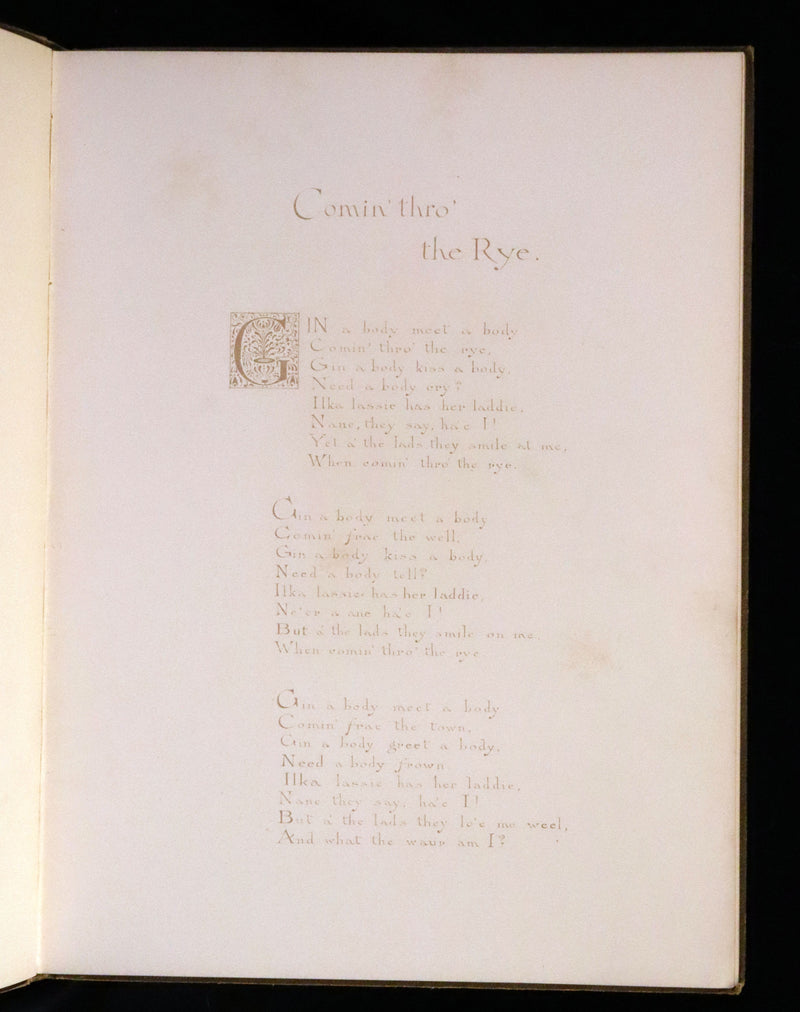 Comin' thro'
the Rye.
GIN a body meet a body
Comin' thro' the rye,
Gin a body kiss a body,
Need a body cry?
Ilka lassie has her laddie,
Nane, they say, ha'e I!
Yet a' the lads they smile at me,
When comin' thro' the rye.
Gin a body meet a body
Comin' frae the well,
Gin a body kiss a body,
Need a body tell?
Ilka lassie has her laddie,
Ne'er a ane ha'e I!
But a' the lads they smile on me,
When comin' thro' the rye.
Gin a body meet a body
Comin' frae the town,
Gin a body greet a body,
Need a body frown.
Ilka lassie has her laddie,
Nane they say, ha'e I!
But a' the lads they lo'e me weel,
And what the waur am I?